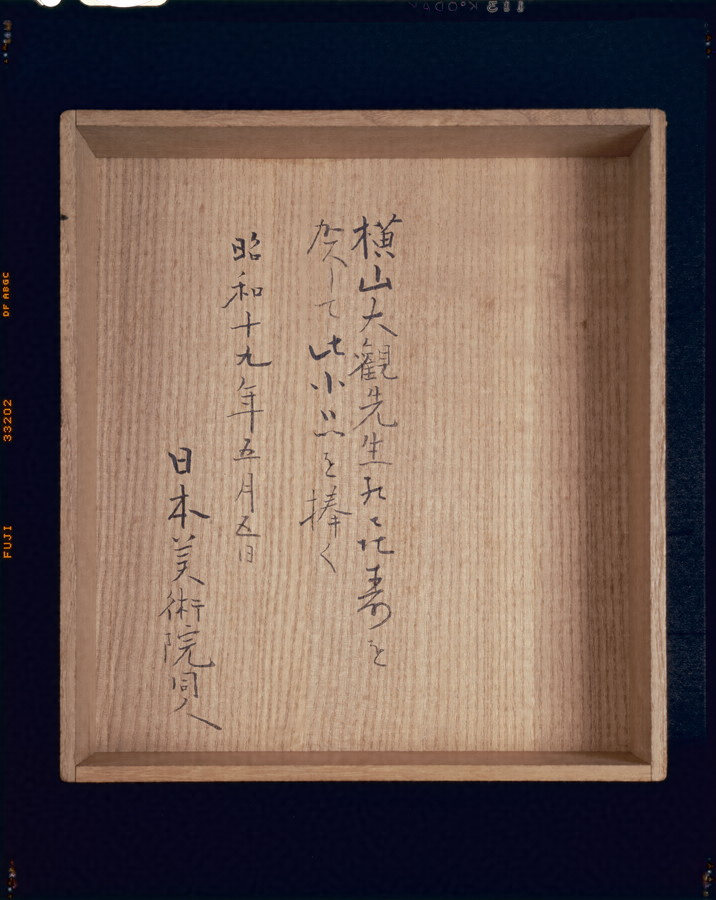 横山大觀先生の㐂寿を
賀して此小品を捧く
昭和十九年五月五日
日本美術院同人
FUJI 33202 DF ABGC